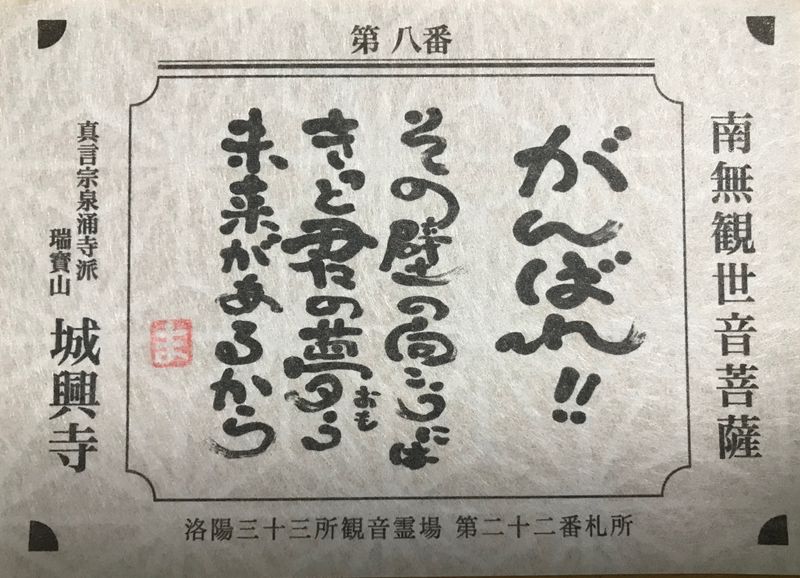 第八番
南無観世音菩薩
がんばれ!!
その壁の向こうには
きっと君の夢う
おも
未来があるから
ま
真言宗泉涌寺派
瑞寶山
城興寺
洛陽三十三所観音霊場 第二十二番札所